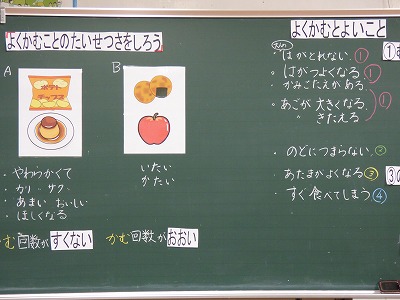 よくかむことのたいせつさをしろう
A
ポテト
チップス
・やわらかくて
・カリ サク
・あまい おいしい
・ほしくなる
かむ回数がすくない
B
いたい
かたい
かむ回数がおおい
よくかむとよいこと
・はがとれない ①
・はがつよくなる ①
・かみごたえがある
・あごが大きくなる ①
・〃 きたえる
・のどにつまらない ②
・あたまがよくなる ③
・すぐ食べてしまう ④
①
③の